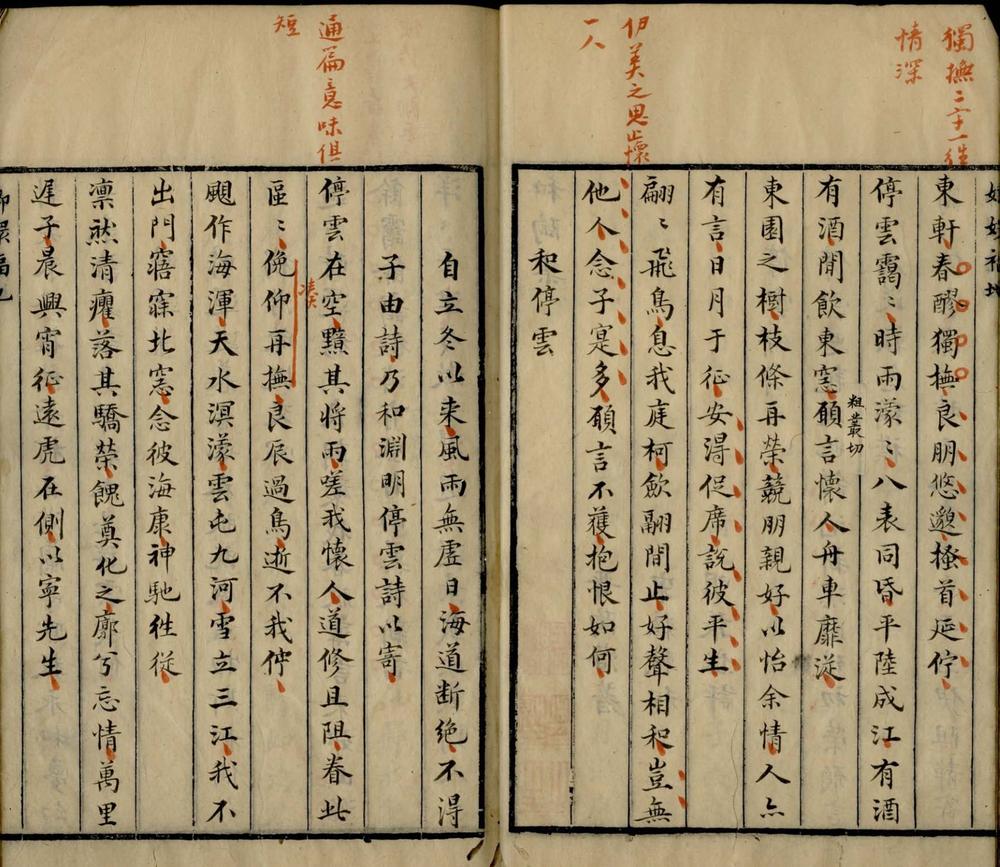 獨撫二章一往
情深
伊美之思止懷
一人
東軒春醪獨撫良朋悠邈搔首延佇
停雲靄〻時雨濛〻八表同昏平陸成江有酒
有酒閒飲東窓願言懷人舟車靡從
粗叢切
東園之樹枝條再榮競朋親好以怡余情人亦
有言日月于征安得促席說彼平生
翩〻飛鳥息我庭柯歛翮閒止好聲相和豈無
他人念子寔多願言不獲抱恨如何
和停雲
通篇意味俱
短
自立冬以来風雨無虛日海道断絶不得
子由詩乃和淵明停雲詩以寄
停雲在空黯其將雨嗟我懷人道修且阻眷此
區〻俛仰再撫良辰過鳥逝不我伫
颶作海渾天水溟濛雲屯九河雪立三江我不
出門寤寐北窓念彼海康神馳徃從
凛然清癯落其驕榮餽奠化之廓兮忘情萬里
遲子晨興宵征遠虎在側以寧先生